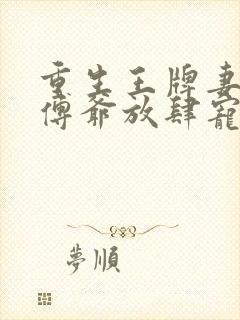 重生王牌妻
傅爺放肆寵
夢順